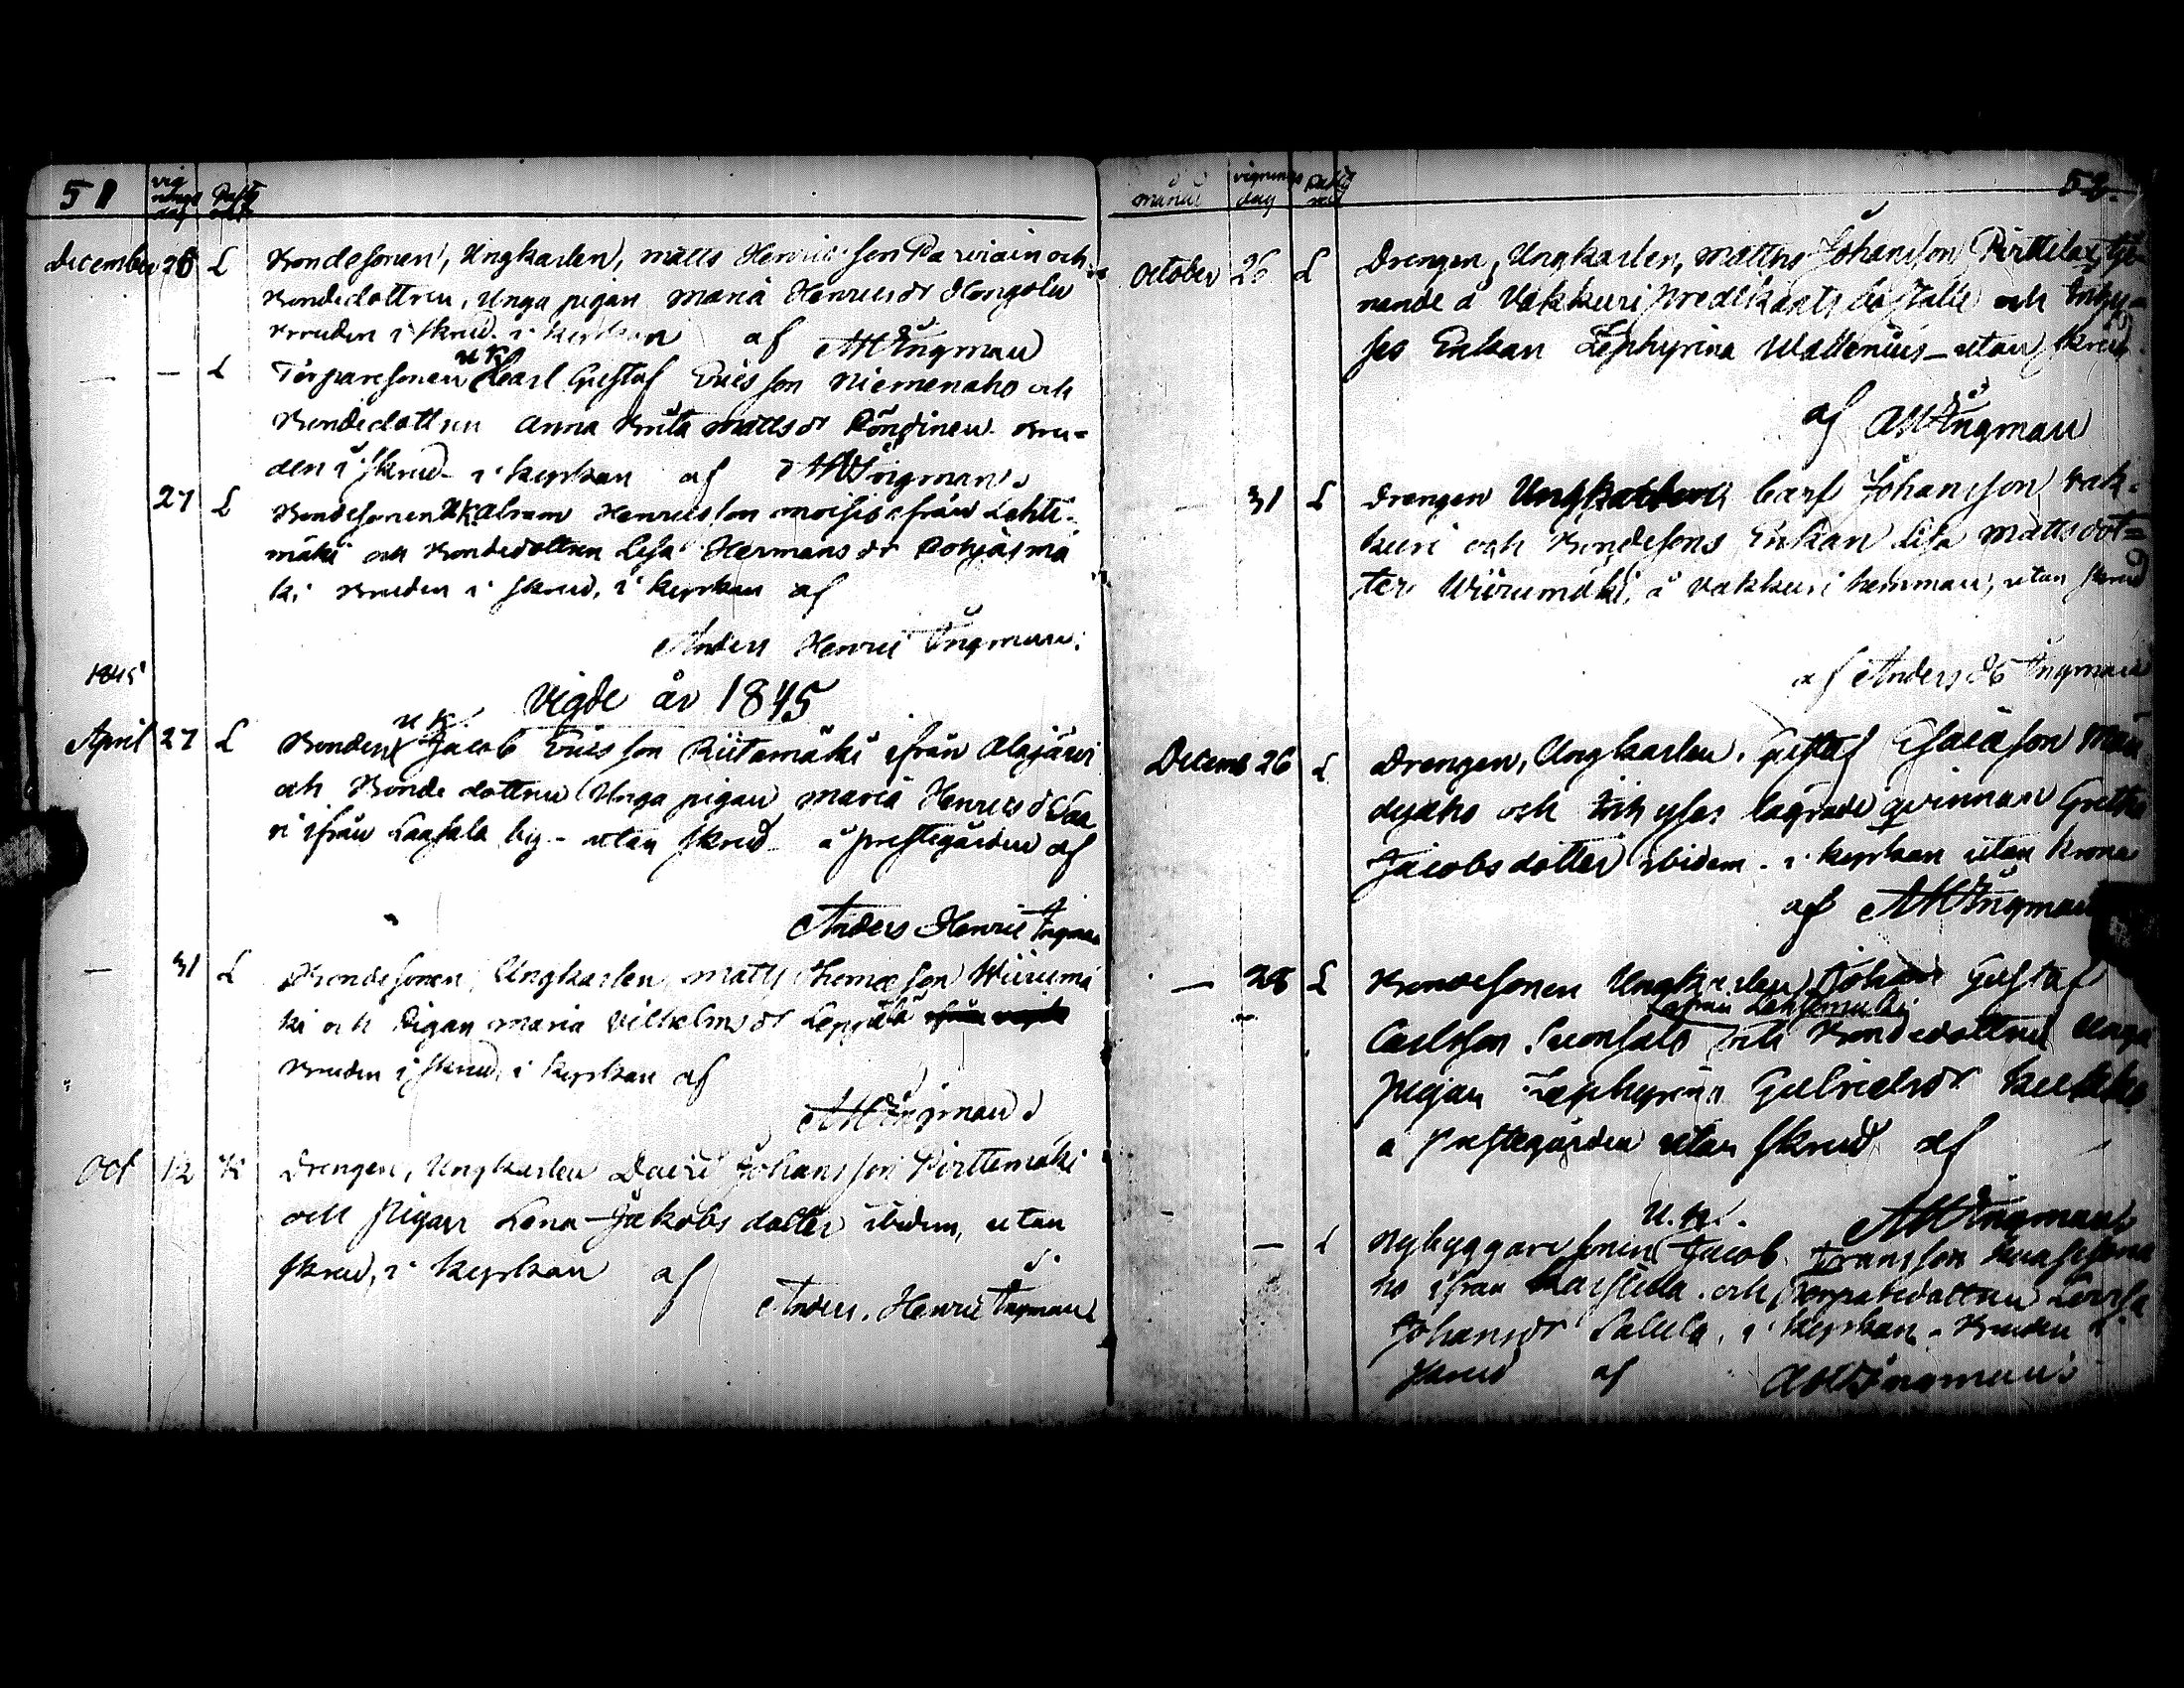 51
vig
nings
dag
December 26 L Bondesonen, Ungkarlen, Matts Henricsson Parviain och
Bondedottren, Unga pigan Maria Henricsdr Hongola
bruden i skrud. i kyrkan af AHIngman
— — L Torparesonen u k Carl Gustaf Ericsson Niemenaho och
Bondedottren Anna Brita Mattsdr Rönginen bru-
den i skrud i kyrkan af AHIngman
27 L Bondesonen UK Abram Henricsson Moisio från Lehti-
mäki och Bondedottren Lisa Hermansdr Pohjasmä
ki bruden i skrud, i kyrkan af
Anders Henric Ingman
1845
Vigde år 1845
April 27 L Bonden u k. Jacob Ericsson Riitamäki ifrån Alajärvi
och Bonde dottren Unga pigan Maria Henricsdr Saa
ri ifrån Laasala by - utan skrud å prestegården af
Anders Henric Ingman
— 31 L Bondesonen, Ungkarlen Matts Thomæson Wiirumä
ki och Pigan Maria Vilhelmsdr Leppälä
bruden i skrud, i kyrkan af
AHIngman
Oct 12 K Drengen, Ungkarlen David Johansson Pirttimäki
och pigan Lena Jakobs dotter ibidem, utan
skrud, i kyrkan af
Anders Henric Ingman
månad vignings
dag 52.
October 26 L Drengen, Ungkarlen, Matths Johansson Pirttilax tje-
nande å Vakkuri predikants boställe och
Enkan Zephyrina Wallenius — utan skrud
af AHIngman
— 31 L Drengen Ungkarlen Carl Johansson Vak-
kuri och Bondesons Enkan Lisa Mattsdot=
ter Wiirumäki, å Vakkuri hemman, utan skrud
af Anders H Ingman
Decemb 26 L Drengen, Ungkarlen, Gustaf Esaiæson
och lägrade qvinnan Greta
Jacobsdotter ibidem. i kyrkan utan krona
af AHIngman
— 28 L Bondesonen Ungkarlen Johan Gustaf
ifrån Lehtimäki
Carlsson Suonsalo och Bondedottren Unga
pigan Zephyrina Gabrielsdr
å Prestegården utan skrud af
AHIngman
— L Nybyggare sonen u.k. Jacob Fransson
ho ifrån Karstula och Torparedottren Lovisa
Johansdr Salula, i kyrkan. Bruden i
skrud af AHIngman